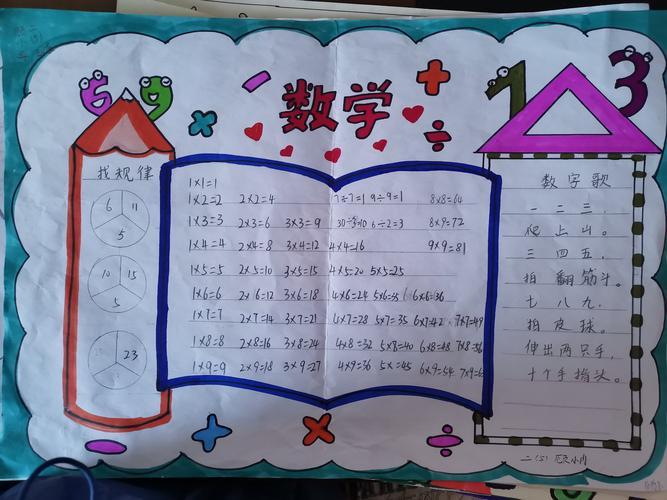 6 9
数学
1 3
找规律
6 11
5
10 15
5
23
1×1=1
1×2=2 2×2=4 7÷7=1 9÷9=1 8×8=64
1×3=3 2×3=6 3×3=9 6÷2=3 8×9=72
1×4=4 2×4=8 3×4=12 4×4=16 9×9=81
1×5=5 2×5=10 3×5=15 4×5=20 5×5=25
1×6=6 2×6=12 3×6=18 4×6=24 5×6=35 6×6=36
1×7=7 2×7=14 3×7=21 4×7=28 5×7=35 6×7=42 7×7=49
1×8=8 2×8=16 3×8=24 4×8=32 5×8=40 6×8=48 7×8=56
1×9=9 2×9=18 3×9=27 4×9=36 5×=45 6×9=54 7×9=6
数字歌
一二三
爬上山。
三四五,
拍翻筋斗。
七八九,
拍皮球。
伸出两只手,
十个手指头。
二(5)